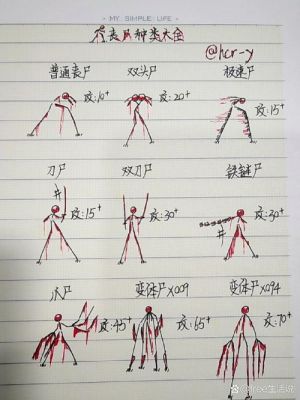 MY SIMPLE LIFE
丧尸种类大全
@hcr-y
普通丧尸 双头尸 极速尸
攻:10+ 攻:20+ 攻:15+
刀尸 双刀尸 铁链尸
攻:15+ 攻:30+ 攻:30+
爪尸 变体尸X009 变体尸X094
攻:45+ 攻:65+ 攻:70+